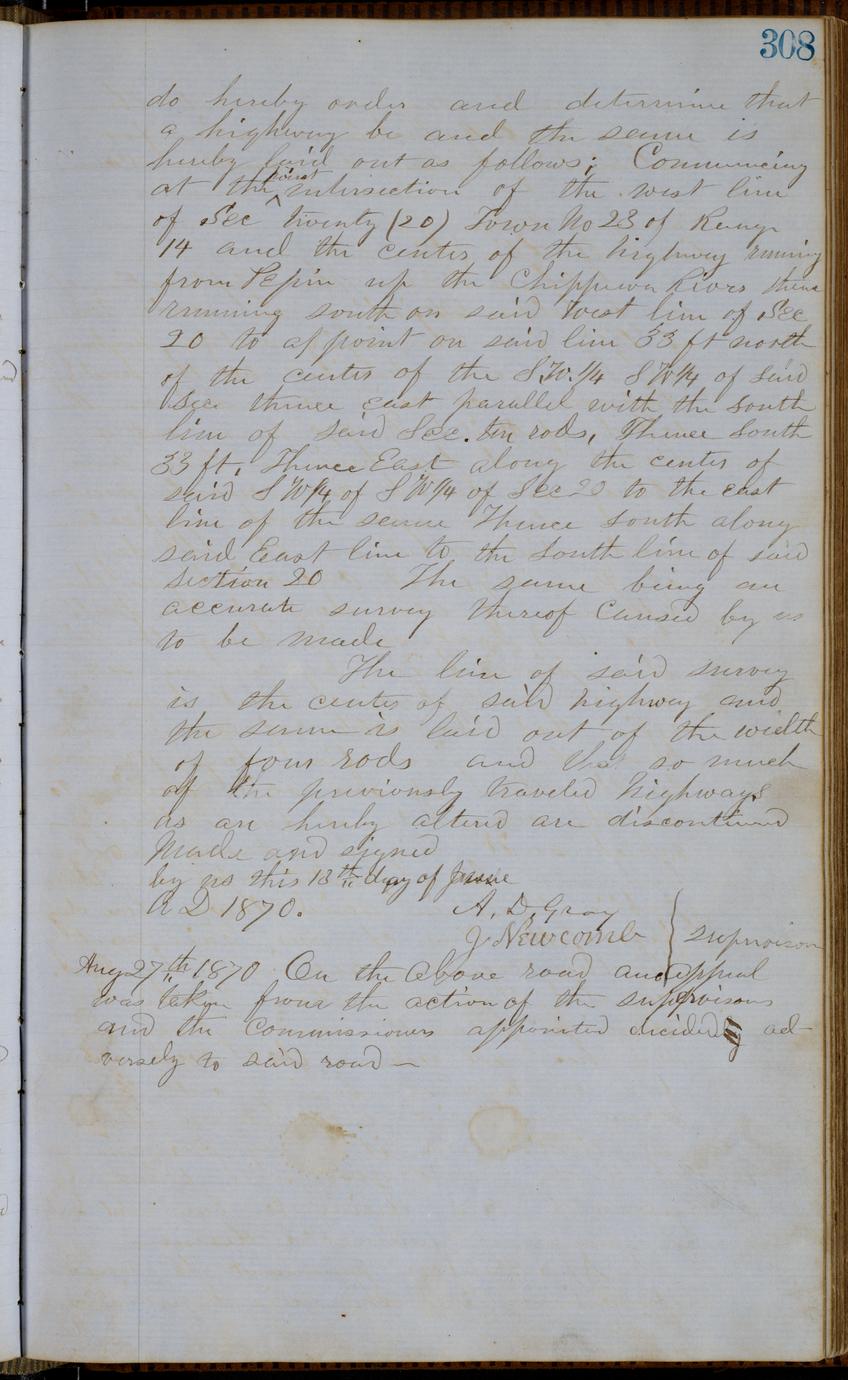 308
do hereby order and determine that
a highway be and the same is
hereby laid out as follows; Commencing
at the point intersection of the west line
of Sec twenty (20) Town No 23 of Range
14 and the center of the highway running
from Pepin up the Chippewa River thence
running south on said west line of Sec
20 to a point on said line 33 ft north
of the center of the S.W. 1/4 S W 1/4 of said
Sec thence east parallel with the south
line of said Sec. ten rods, Thence South
33 ft. Thence East along the center of
said S W 1/4 of S W 1/4 of Sec 20 to the east
line of the same Thence South along
said East line to the South line of said
Section 20 The same being an
accurate survey thereof Caused by us
to be made
The line of said survey
is the center of said highway and
the same is laid out of the width
of four rods and that so much
of the previously traveled highways
as are hereby altered are discontinued
Made and signed
by us this 18th day of June
A D 1870.
A. D. Gray
J Newcomb
Supervisors
Aug 27th 1870 On the above road an appeal
was taken from the action of the supervisors
and the Commissioners appointed decided ad-
versely to said road —